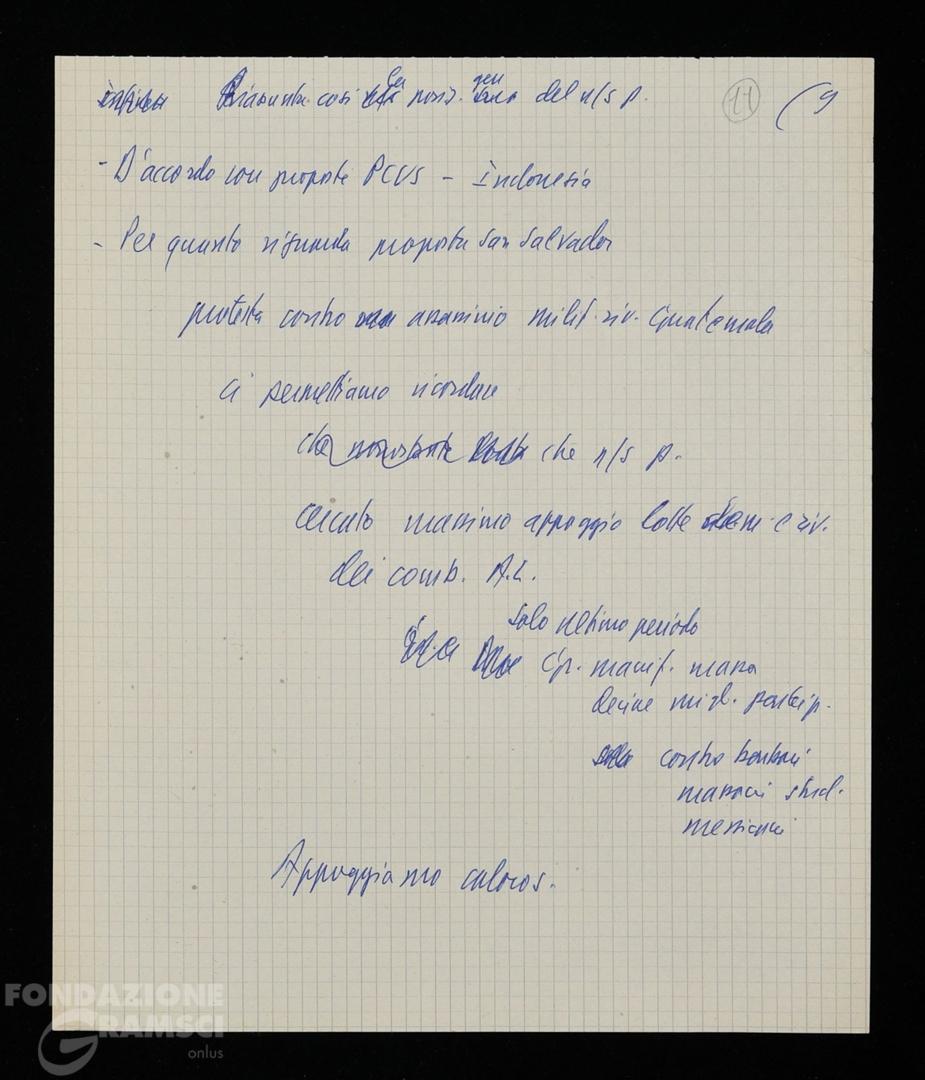 Riassunta così la posiz. gen del n/s p. 11 (9
- D'accordo con proposte PCUS - Indonesia
- Per quanto riguarda proposta San Salvador
protesta contro assassinio milit. riv. Guatemala
ci permettiamo ricordare
che nonostante che n/s p.
cercato massimo appoggio lotte dem. e riv.
dei comb. A.L.
solo ultimo periodo
manif. massa
decine migl. partecip.
contro barbari
massacri stud.
messicani
Appoggiamo caloros.
FONDAZIONE
GRAMSCI
onlus